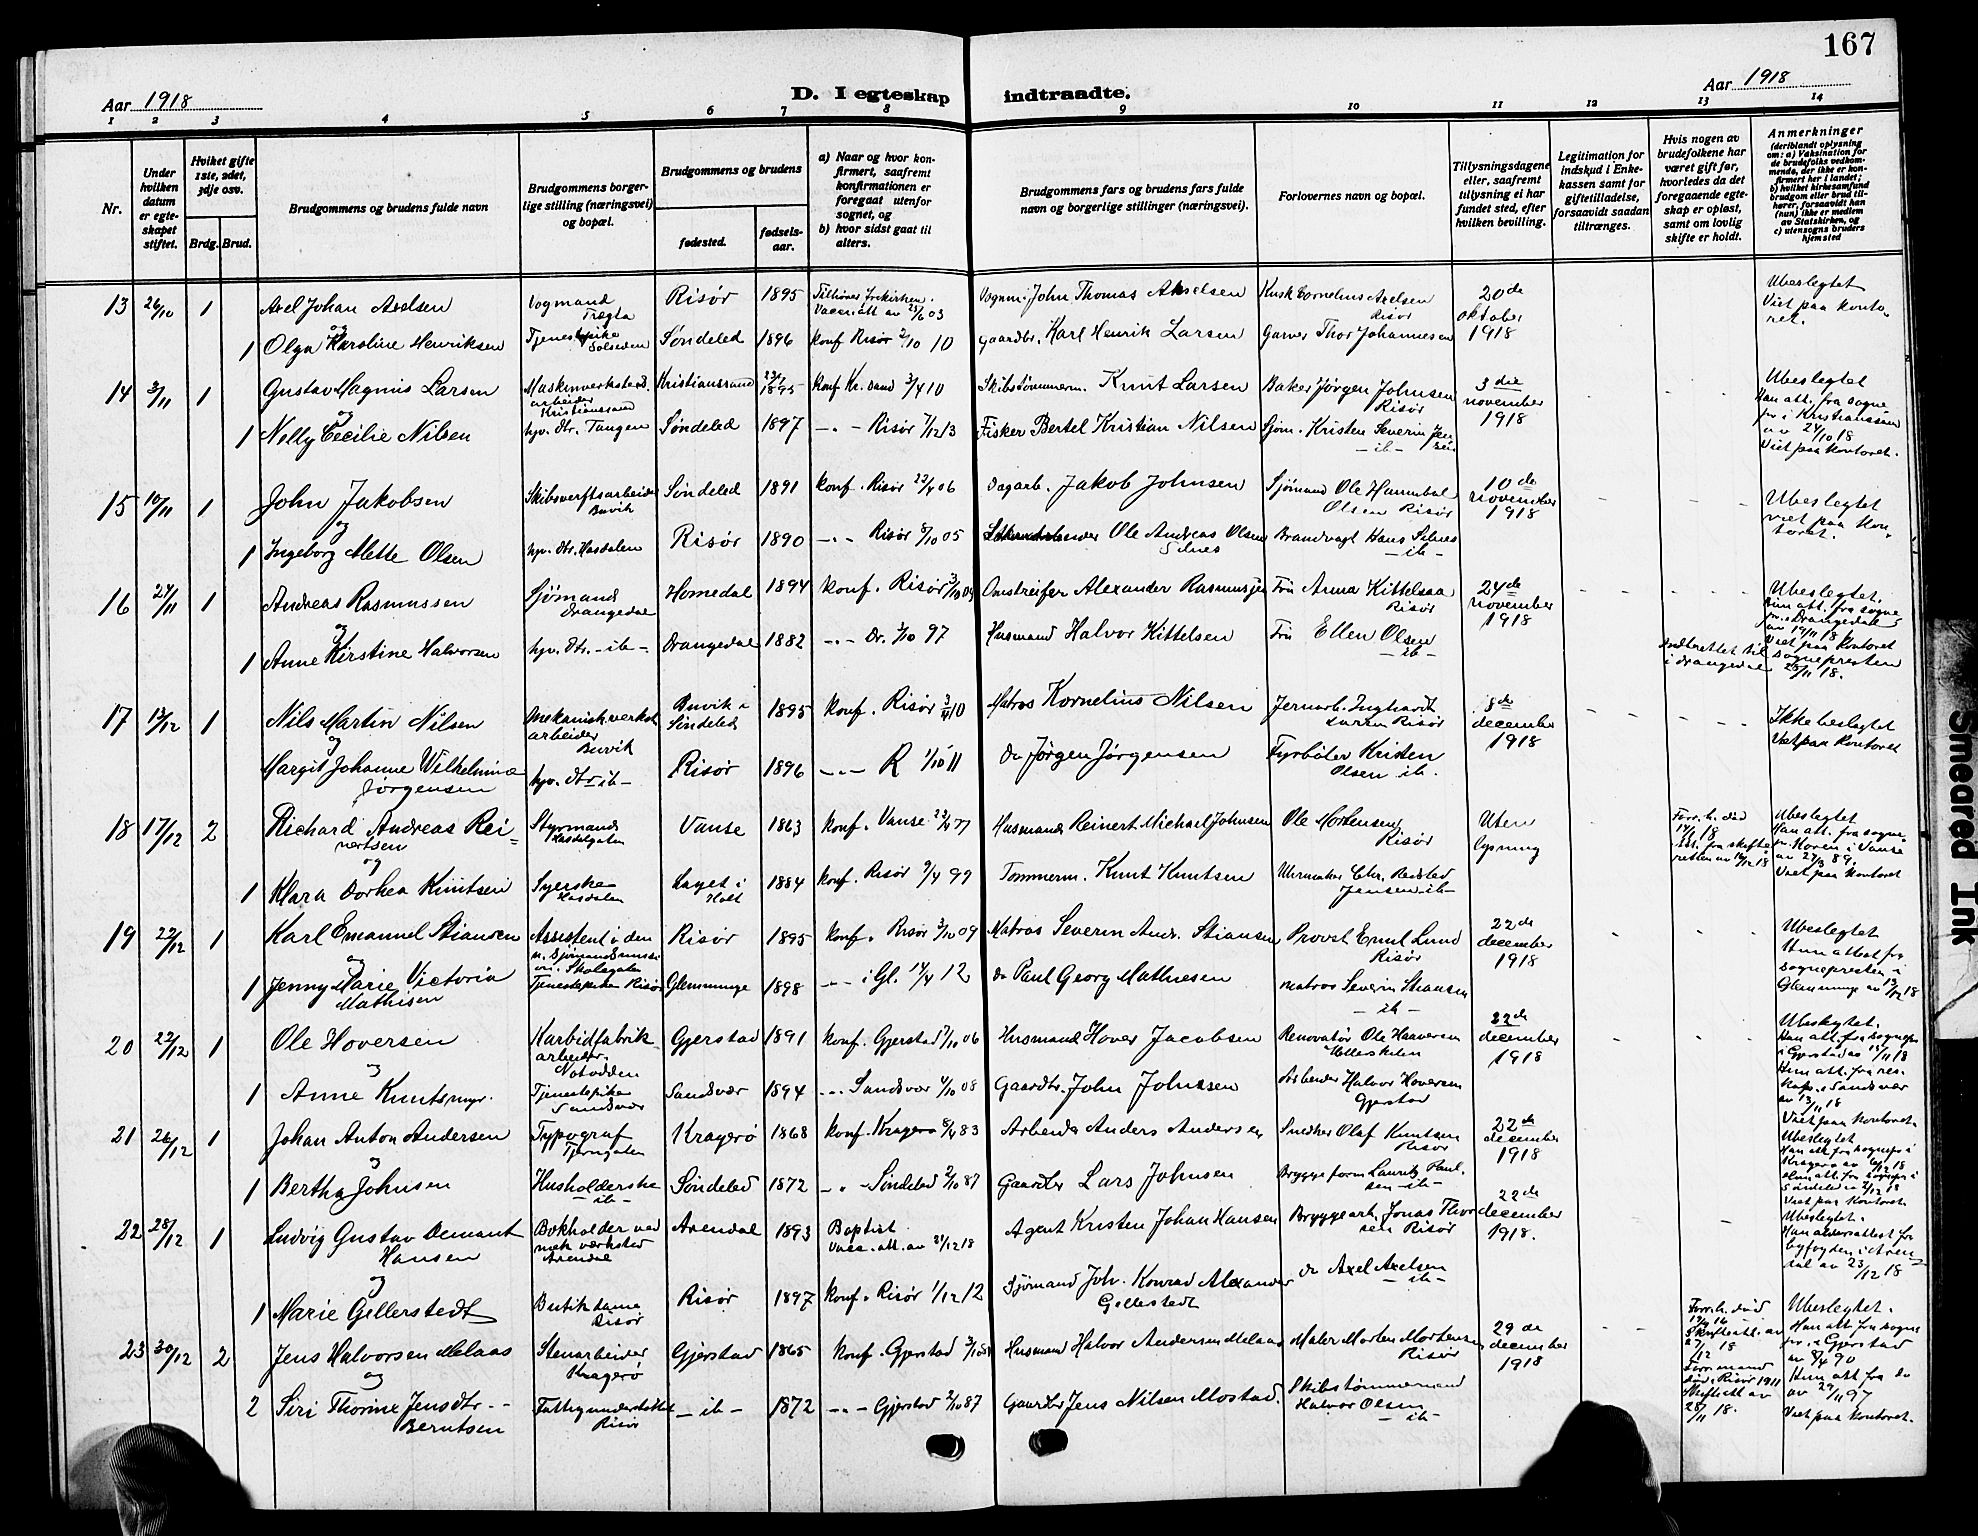 167
Aar 1918
D. I egteskap indtraadte.
Aar 1918
1 2 3 4 5 6 7 8 9 10 11 12 13 14
Nr.
Under hvilken datum er egteskapet stiftet.
Hvilket gifte 1ste, 2det, 3dje osv.
Brdg. Brud.
Brudgommens og brudens fulde navn
Brudgommens borgerlige stilling (næringsvei) og bopæl.
Brudgommens og brudens
fødested.
fødselsaar.
a) Naar og hvor konfirmert, saafremt konfirmationen er foregaat utenfor sognet, og
b) hvor sidst gaat til alters.
Brudgommens fars og brudens fars fulde navn og borgerlige stillinger (næringsvei).
Forlovernes navn og bopæl.
Tillysningsdagene eller, saafremt tillysning ei har fundet sted, efter hvilken bevilling.
Legitimation for indskud i Enkekassen samt for giftetilladelse, forsaavidt saadan tiltrænges.
Hvis nogen av brudefolkene har været gift før, hvorledes da det foregaaende egteskap er opløst, samt om lovlig skifte er holdt.
Anmerkninger (deriblandt oplysning om: a) Vaksination for de brudefolks vedkommende, der ikke er konfirmert her i landet; b) hvilket kirkesamfund brudgom eller brud tilhører, forsaavidt han (hun) ikke er medlem av Statskirken, og c) utensogns bruders hjemsted
13 26/10 1 Axel Johan Axelsen Vognmand Risør 1895 Tilhører frikirken. Vacc. att av 23/6 03 Vognm. John Thomas Akselsen Kusk Cornelius Axelsen Risør 20de oktober 1918 Ubeslegtet Viet paa kontoret.
og
1 Olga Karoline Henriksen Tjenestepike Solseden Søndeled 1896 konf Risør 2/10 10 Gaardbr. Karl Henrik Larsen Garver Thor Johannesen
14 3/11 1 Gustav Magnus Larsen Maskinverkstedarbeider Kristianssand Kristianssand 1895 Konf Kr.sand 3/4 10 Skibstømmerm. Knut Larsen Baker Jørgen Johnsen Risør 3die november 1918 Ubeslegtet Han att. fra sognepr i Kristianssand av 24/10 18 Viet paa kontoret.
og
1 Nelly Cecilie Nilsen hjv. dtr. Tangen Søndeled 1897 -"- Risør 7/12 13 Fisker Bertel Kristian Nilsen Sjøm. Kristen Severin -ib-
15 10/11 1 John Jakobsen Skibsverftsarbeider Buvik Søndeled 1891 konf. Risør 22/4 06 Dagarb. Jakob Johnsen Sjømand Ole Hannibal Olsen Risør 10de november 1918 Ubeslegtet viet paa kontoret.
og
1 Ingeborg Mette Olsen hjv. dtr. Hasdalen Risør 1890 -"- Risør 8/10 05 Ole Andreas Olsen Silnes Brandvagt Hans Silnes -ib-
16 24/11 1 Andreas Rasmussen Sjømand Drangedal Homedal 1894 konf. Risør 3/10 09 Omstreifer Alexander Rasmussen Fru Anna Kittelsaa Risør 24de november 1918 Ubeslegtet. Hun att. fra sognepr. i Drangedal av 19/11 18 Viet paa kontoret
og
1 Anne Kirstine Halvorsen hjv. dtr. -ib- Drangedal 1882 -"- Dr. 3/10 97 Husmand Halvor Kittelsen Fru Ellen Olsen -ib- Indberettet til sognepresten i Drangedal 25/11 18.
17 13/12 1 Nils Martin Nilsen Mekanisk.verkst. arbeider Buvik Buvik i Søndeled 1895 konf. Risør 3/4 10 Matros Kornelius Nilsen Jernarb. Inghardt Larsen Risør 8de december 1918 Ikke beslegtet Viet paa Kontoret
og
Margit Johanne Wilhelmine Jørgensen hjv. dtr -ib- Risør 1896 -"- R 1/10 11 Do Jørgen Jørgensen Fyrbøter Kristen Olsen -ib-
18 17/12 2 Richard Andreas Reinertsen Styrmand Hasdalgaten Vanse 1863 konf. Vanse 22/4 77 Husmand Reinert Michael Johnsen Ole Mortensen Risør Uten lysning Forr. h. død 14/1 18 Att. fra skifteretten av 16/12 18 Ubeslegtet Han att. fra sognepr. Koren i Vanse av 27/3 89. Viet paa kontoret
og
1 Klara Dorthea Knutsen Syerske Hasdalen Laget i Holt 1884 konf. Risør 9/4 99 Tømmerm. Knut Knutsen Uhrmaker Chr. Redsted Jensen -ib-
19 22/12 1 Karl Emanuel Stiansen Assistent i den n. Sjømandsmission. Skolegaten Risør 1895 konf. Risør 3/10 09 Matros Severin Andr. Stiansen Provst Emil Lund Risør 22de december 1918 Ubeslegtet Hun attest fra sognepresten i Glemminge av 13/12 18
og
1 Jenny Marie Victoria Mathisen Tjenestepike Risør Glemminge 1898 -"- i Gl. 14/4 12 Do Paul Georg Mathiesen Matros Severin Stiansen -ib-
20 22/12 1 Ole Hoversen Karbidfabrikarbeider. Notodden Gjerstad 1891 konf. Gjerstad 17/10 06 Husmand Hover Jacobsen Renovatør Ole Haaversen 22de december 1918 Ubeslegtet. Han att. fra sognepr i Gjerstad av 15/11 18 Hun att. fra res. kap. i Sandsvær av 13/11 18 Viet paa kontoret.
og
1 Anne Knutsmyr. Tjenestepike Sandsvær Sandsvær 1894 -"- Sandsvær 4/10 08 Gaardbr. John Johnssen Arbeider Halvor Hoversen Gjerstad
21 26/12 1 Johan Anton Andersen Typograf Tjerngaten Kragerø 1868 konf. Kragerø 8/4 83 Arbeider Anders Andersen Snedker Olaf Knutsen Risør 22de december 1918 Ubeslegtet Han att fra sognepr i Kragerø av 6/12 18 Hun att. fra sognepr i Søndeled 2/12 18 Viet paa Kontoret
og
1 Bertha Johnsen Husholderske -ib- Søndeled 1872 -"- Søndeled 2/10 87 Gaardbr Lars Johnsen Bryggeform Lauritz Paulsen -ib-
22 28/12 1 Ludvig Gustav Demant Hansen Bokholder ved mek værksted Arendal Arendal 1893 Baptist Vacc. att. av 21/12 18 Agent Kristen Johan Hansen Bryggearb. Jonas Thorsen Risør 22de december 1918. Ubeslegtet. Han aldersattest fra byfogden i Arendal av 23/12 18
og
1 Marie Gellerstedt Butikdame Risør Risør 1897 konf. Risør 1/12 12 Sjømand Joh. Konrad Alexander Gellerstedt do Axel Axelsen -ib-
23 30/12 2 Jens Halvorsen Melaas Stenarbeider Kragerø Gjerstad 1865 konf. Gjerstad Husmand Halvor Andersen Melaas Maler Morten Mortensen Risør 29de december 1918 Forr. h. død Skifteatt. av 27/12 18 Forr. mand død i Risør 1911 Skifteatt av 28/11 18. Ubeslegtet. Han att fra sognepr. i Gjerstad av 8/4 90 Hun att fra do av 29/11 97 Viet paa kontoret.
og
2 Siri Thorine Jensdtr. - Berntsen Fattigunderstøttet Risør -ib- 1872 -"- Gjerstad 2/10 87 Gaardbr Jens Nilsen Mostad. Skibstømmermand Halvor Olsen -ib-
Smeared Ink